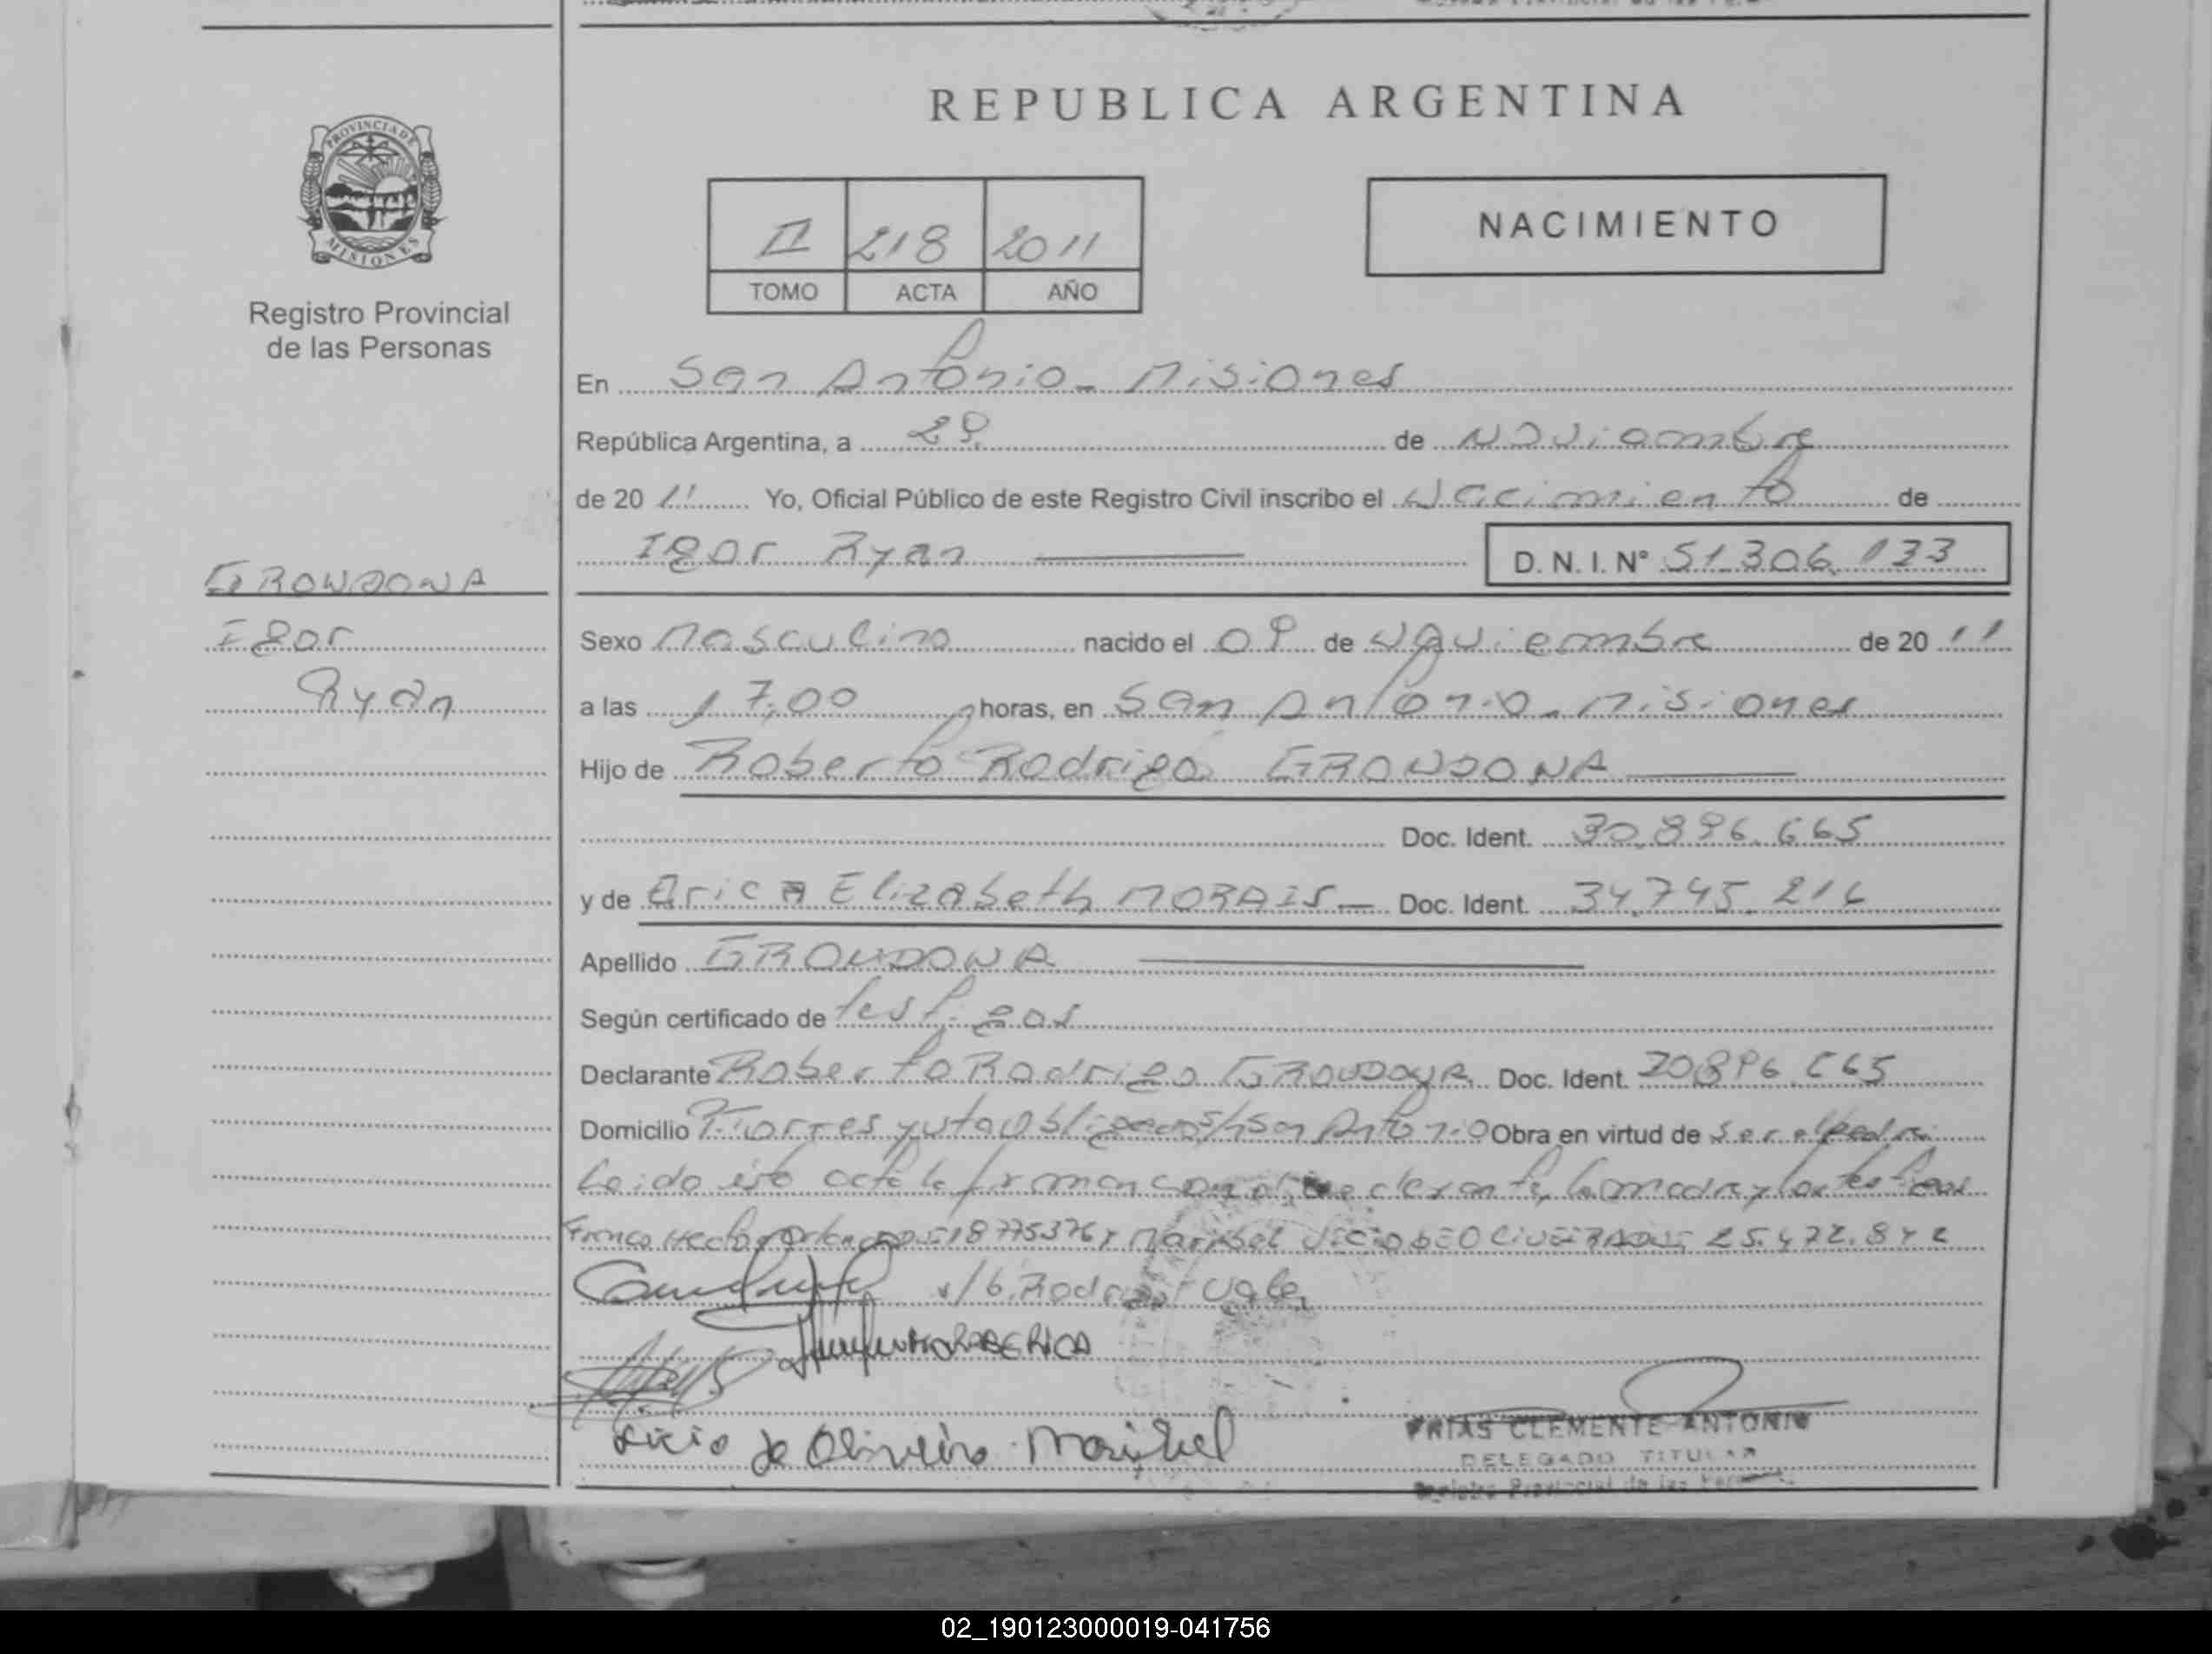 REPUBLICA ARGENTINA
PROVINCIA DE
MISIONES
Registro Provincial
de las Personas
II 218 2011
TOMO ACTA AÑO
NACIMIENTO
En San Antonio - Misiones
República Argentina, a 29 de Noviembre
de 20 11 Yo, Oficial Público de este Registro Civil inscribo el Nacimiento de
Igor Ryan D. N. I. Nº 51.306.133
GRONDONA
Igor
Ryan
Sexo Masculino nacido el 09 de Noviembre de 20 11
a las 17,00 horas, en San Antonio - Misiones
Hijo de Roberto Rodrigo GRONDONA
Doc. Ident. 30.896.665
y de Erica Elizabeth MORAIS Doc. Ident. 34.745.216
Apellido GRONDONA
Según certificado de testigos
Declarante Roberto Rodrigo GRONDONA Doc. Ident. 30896.665
Domicilio San Antonio Obra en virtud de ser el padre
Leido esta acta la firman la madre y los testigos
Franco 18775376 y Maribel 25.472.842
s/b. Rodrigo Vale
ERICA
Licio de Oliveira Maribel
FRIAS CLEMENTE ANTONIO
DELEGADO TITULAR
Registro Provincial de las
02_190123000019-041756